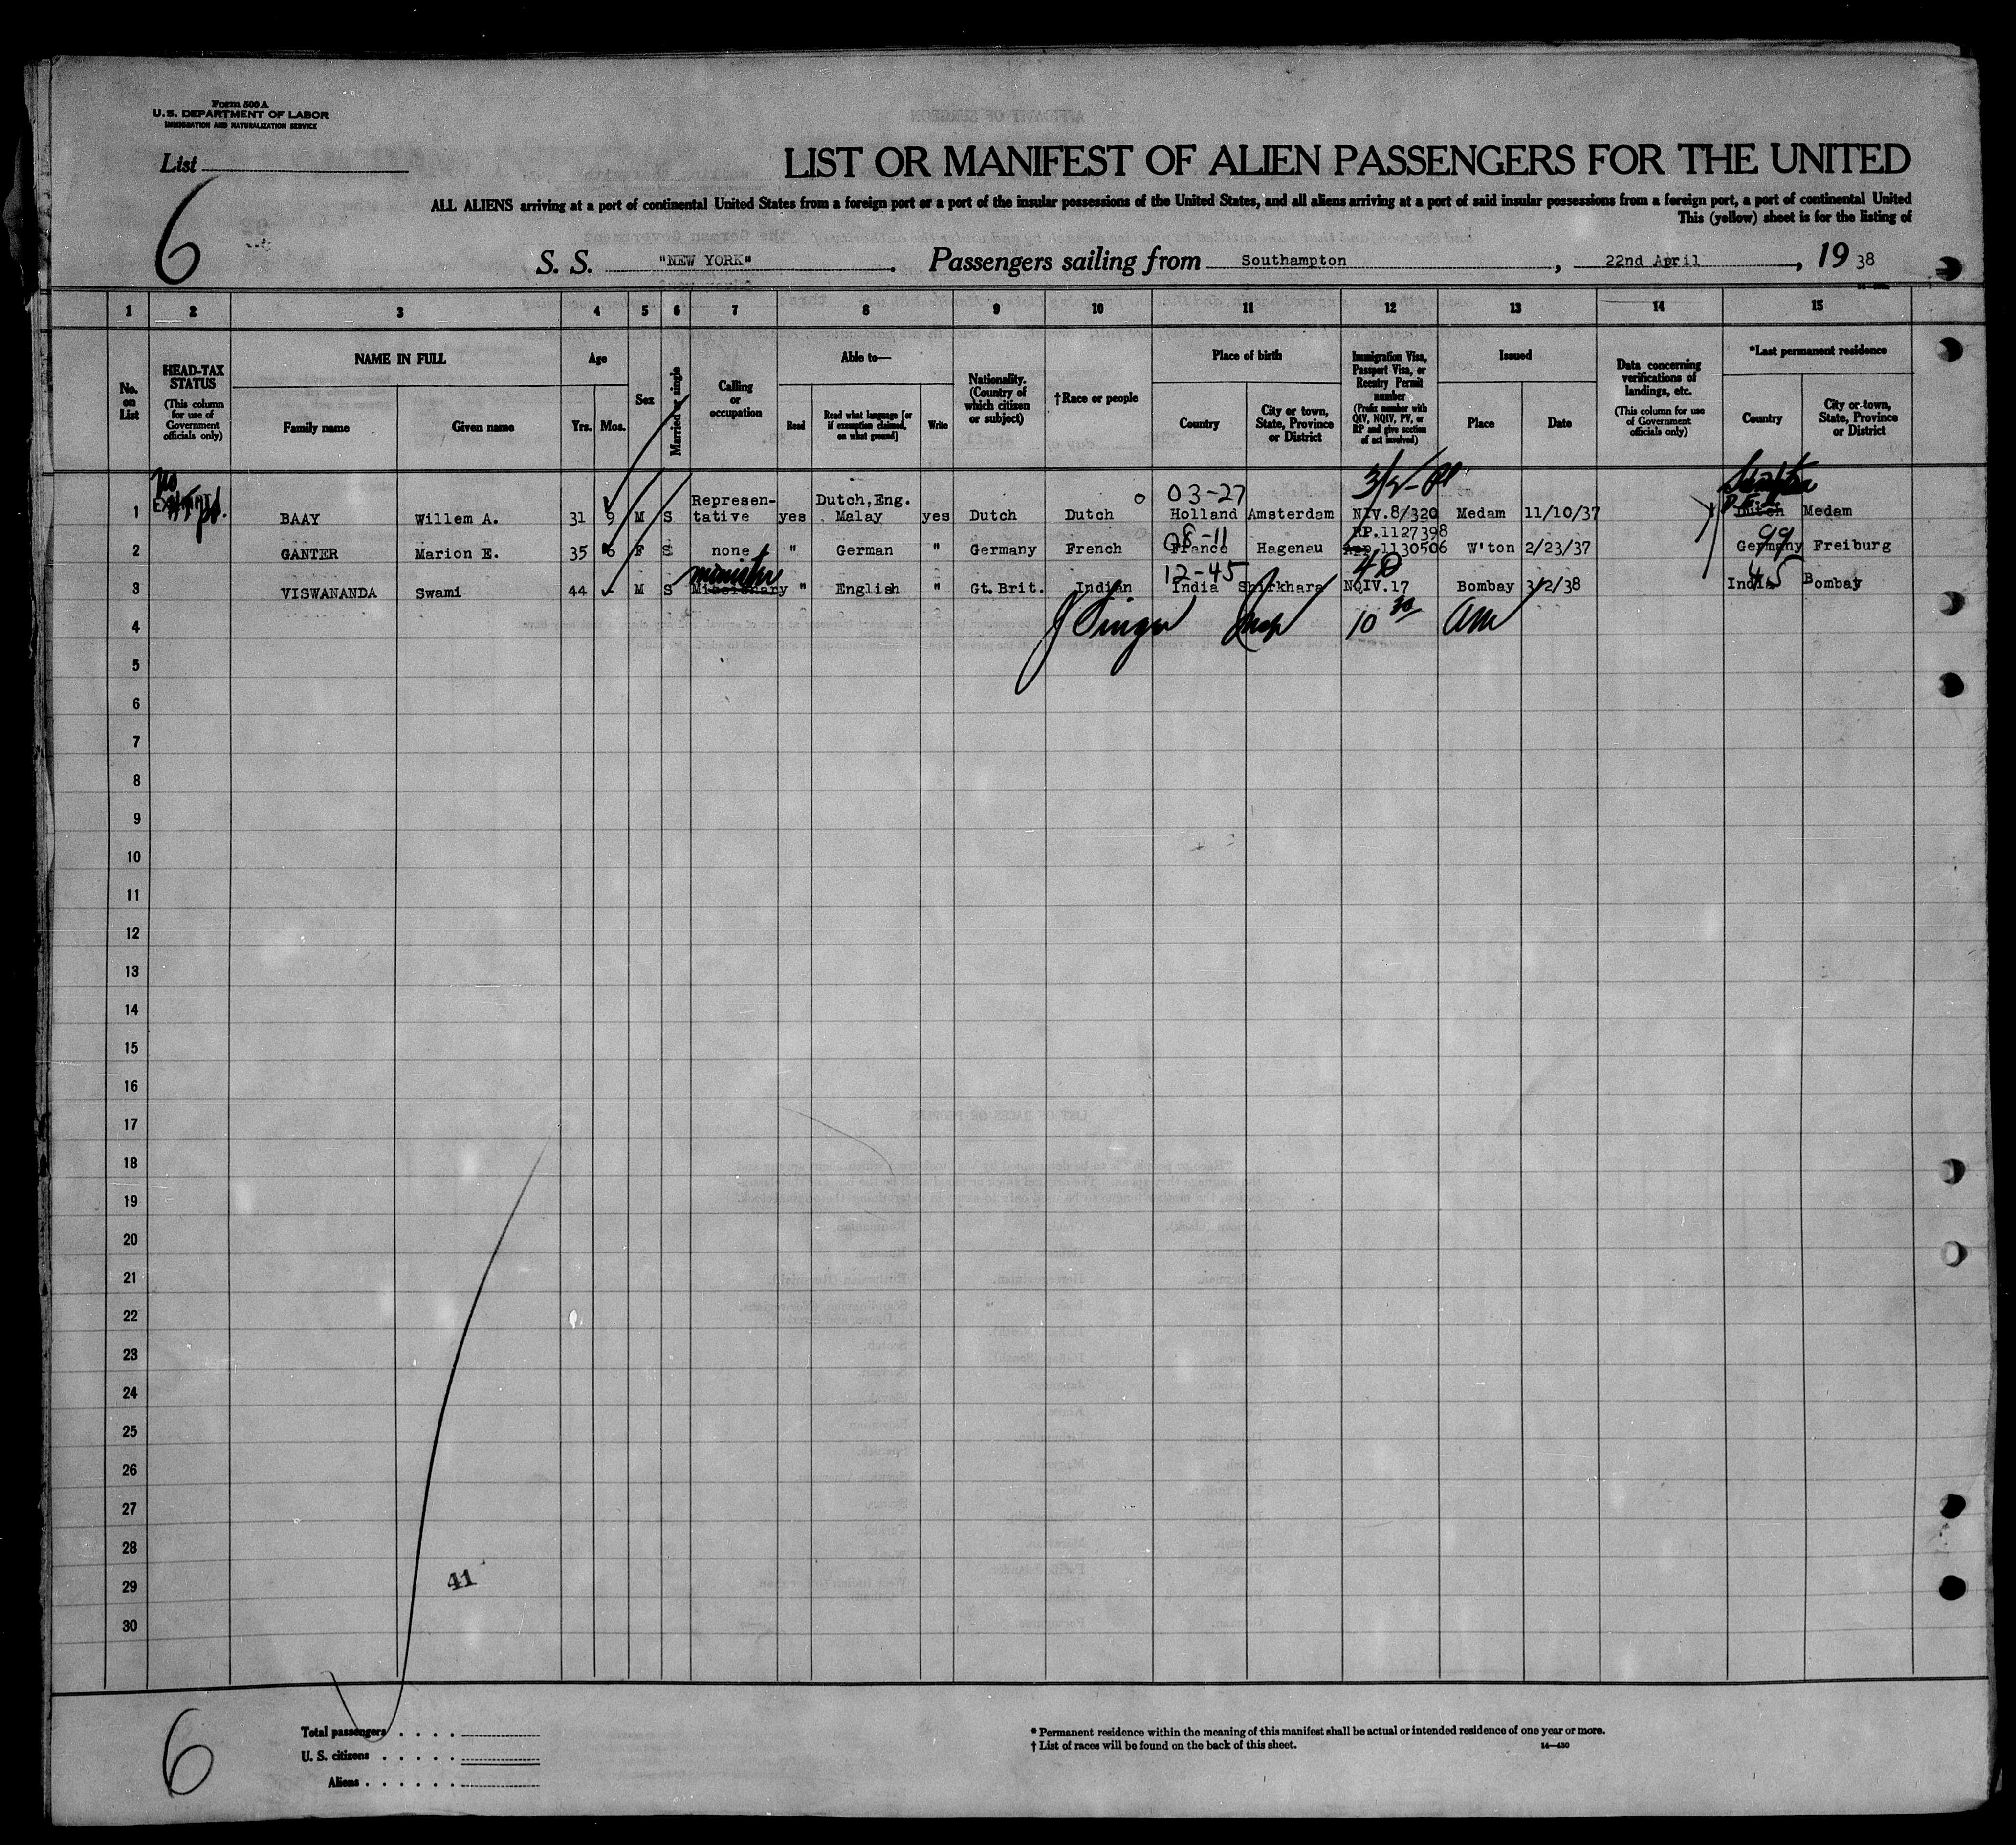 Form 500 A
U.S. DEPARTMENT OF LABOR
IMMIGRATION AND NATURALIZATION SERVICE
List
6
LIST OR MANIFEST OF ALIEN PASSENGERS FOR THE UNITED
ALL ALIENS arriving at a port of continental United States from a foreign port or a port of the insular possessions of the United States, and all aliens arriving at a port of said insular possessions from a foreign port, a port of continental United
This (yellow) sheet is for the listing of
S. S. "NEW YORK". Passengers sailing from Southampton, 22nd April, 19 38
1 2 3 4 5 6 7 8 9 10 11 12 13 14 15
No. on List
HEAD-TAX STATUS (This column for use of Government officials only)
NAME IN FULL
Family name
Given name
Age
Yrs. Mos.
Sex
Married or single
Calling or occupation
Able to—
Read
Read what language [or if exemption claimed, on what ground]
Write
Nationality. (Country of which citizen or subject)
†Race or people
Place of birth
Country
City or town, State, Province or District
Immigration Visa, Passport Visa, or Reentry Permit number (Prefix number with QIV, NQIV, PV, or RP and give section of act involved)
Issued
Place
Date
Data concerning verifications of landings, etc. (This column for use of Government officials only)
*Last permanent residence
Country
City or town, State, Province or District
03-27
1 BAAY Willem A. 31 9 M S Represen-tative yes Dutch, Eng. Malay yes Dutch Dutch Holland Amsterdam NIV.8/320 Medam 11/10/37 Dutch Medam
08-11 RP.1127398 99
2 GANTER Marion E. 35 6 F S none " German " Germany French France Hagenau 1130506 W'ton 2/23/37 Germany Freiburg
minister 12-45 4D 45
3 VISWANANDA Swami 44 - M S Missionary " English " Gt. Brit. Indian India Shirkhara NQIV.17 Bombay 3/2/38 India Bombay
4 J Singer Insp 10 30 AM
5
6
7
8
9
10
11
12
13
14
15
16
17
18
19
20
21
22
23
24
25
26
27
28
29
30
41
6
Total passengers
U. S. citizens
Aliens
* Permanent residence within the meaning of this manifest shall be actual or intended residence of one year or more.
† List of races will be found on the back of this sheet.
14—430